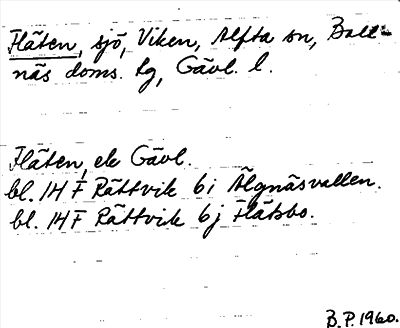 Fläten, sjö, Viken, Alfta sn, Boll-
näs doms. lg, Gävl. l.
Fläten, ek Gävl.
bl. 14 F Rättvik 6 i Älgnäsvallen.
bl. 14 F Rättvik 6 j Flätsbo.
B.P. 1960.